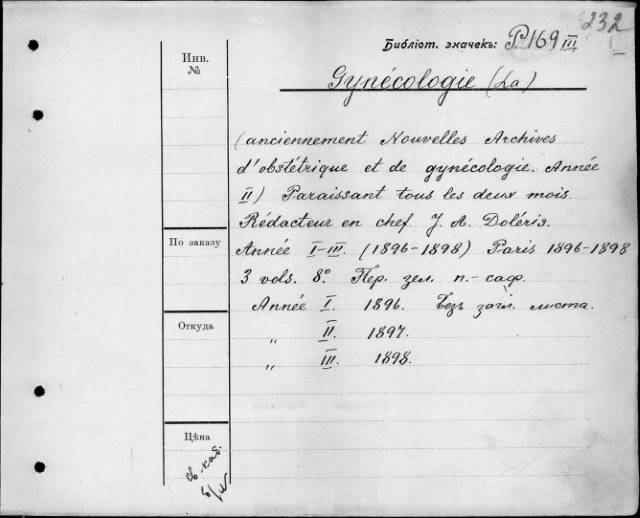 232
Библіот. значекъ: P169 III
Инв.
№
Gynécologie (La)
(anciennement Nouvelles Archives
d'obstétrique et de gynécologie. Année
II) Paraissant tous les deux mois.
Rédacteur en chef J. A. Doléris.
По заказу
Année I-III. (1896-1898) Paris 1896-1898
3 vols. 8°. Пер. зел. п.-саф.
Année I. 1896. Безъ загл. листа.
Откуда
„ II. 1897.
„ III. 1898.
Цѣна